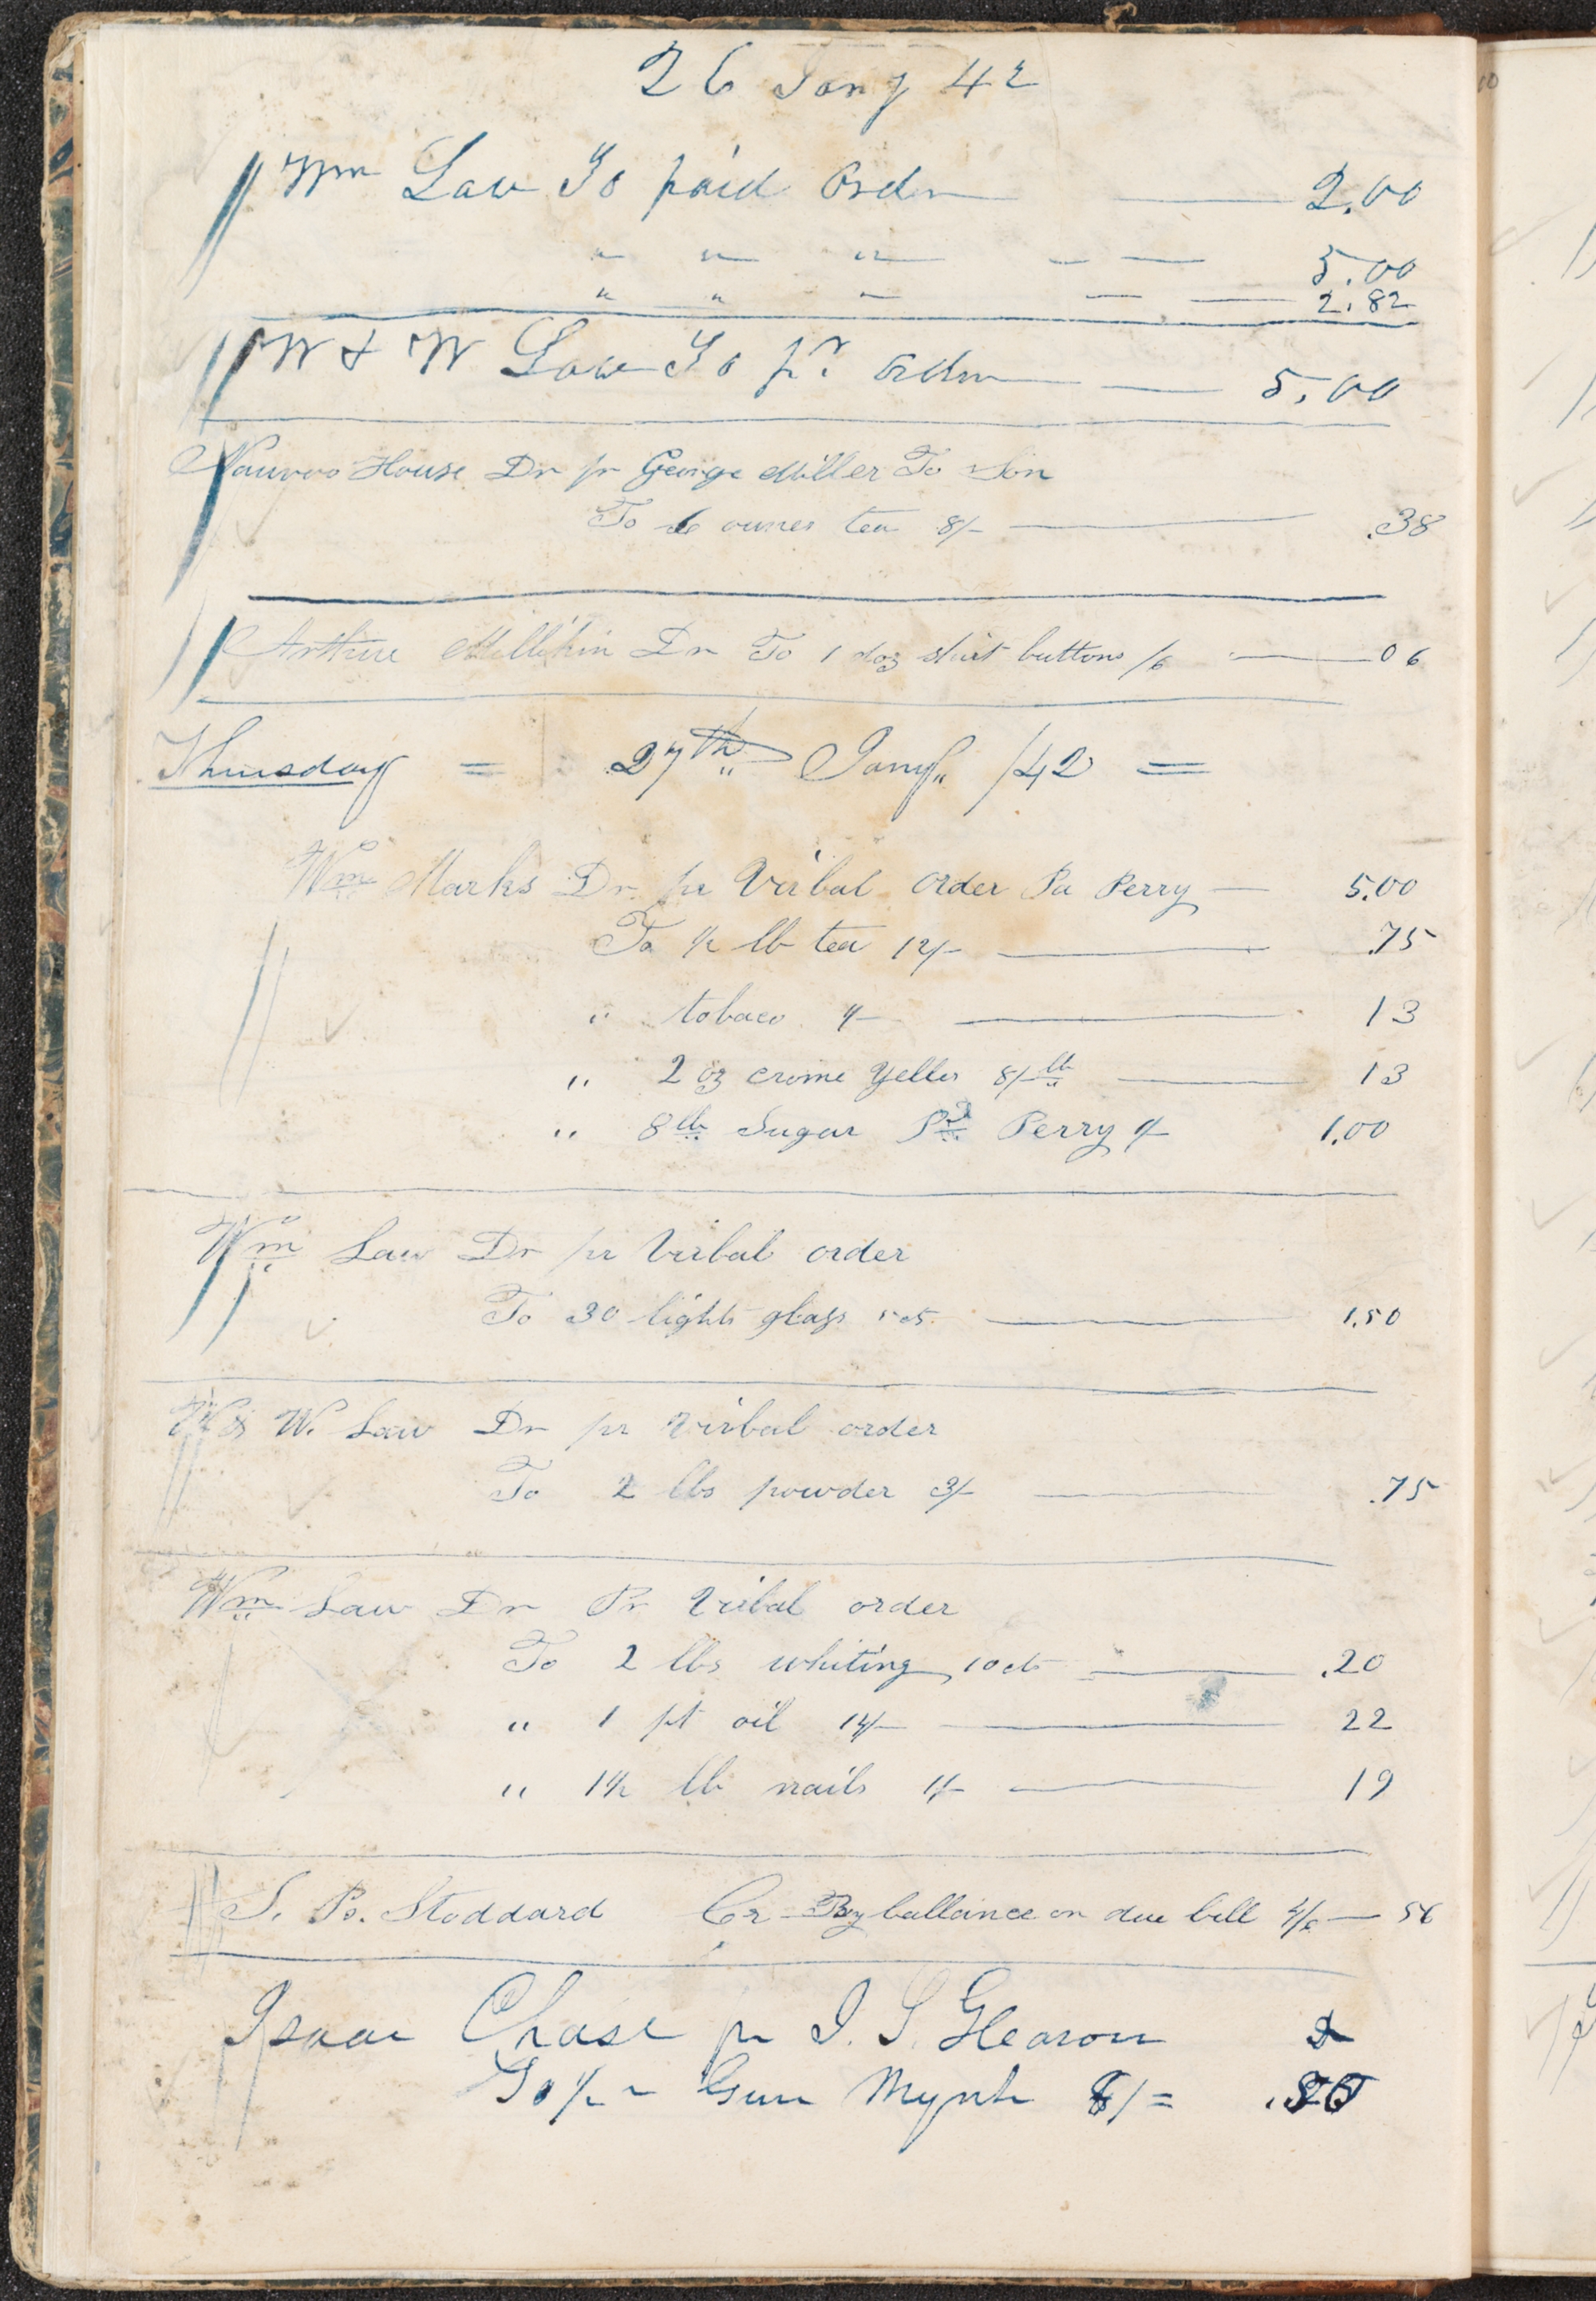 26 Jany 42
Wm Law To paid Order 2.00
" " " 5.00
" " " 2.82
W & W Law To pd order 5.00
Nauvoo House Dr pr George Miller To Son
To 6 ounces tea 8/- .38
Arthur Millikin Dr To 1 doz shirt buttons /6 06
Thursday = 27th Jany /42 =
Wm Marks Dr pr Virbal order Pa Perry 5.00
To ½ lb tea 12/- .75
" tobaco 1/- 13
" 2 oz crome yeller 8/- lb 13
" 8 lb Sugar Pd Perry 1/- 1.00
Wm Law Dr pr Virbal order
To 30 lights glass 5 cts 1.50
W & W. Law Dr pr Virbal order
To 2 lbs powder 3/- .75
Wm Law Dr Pr Virbal order
To 2 lbs whiting 10 cts .20
" 1 pt oil 14/- 22
" 1½ lb nails 1/- 19
S. P. Stoddard Cr By ballance on due bill 4/6 56
Isaac Chase pr J. S. Gleason Dr
To Gum Myrrh